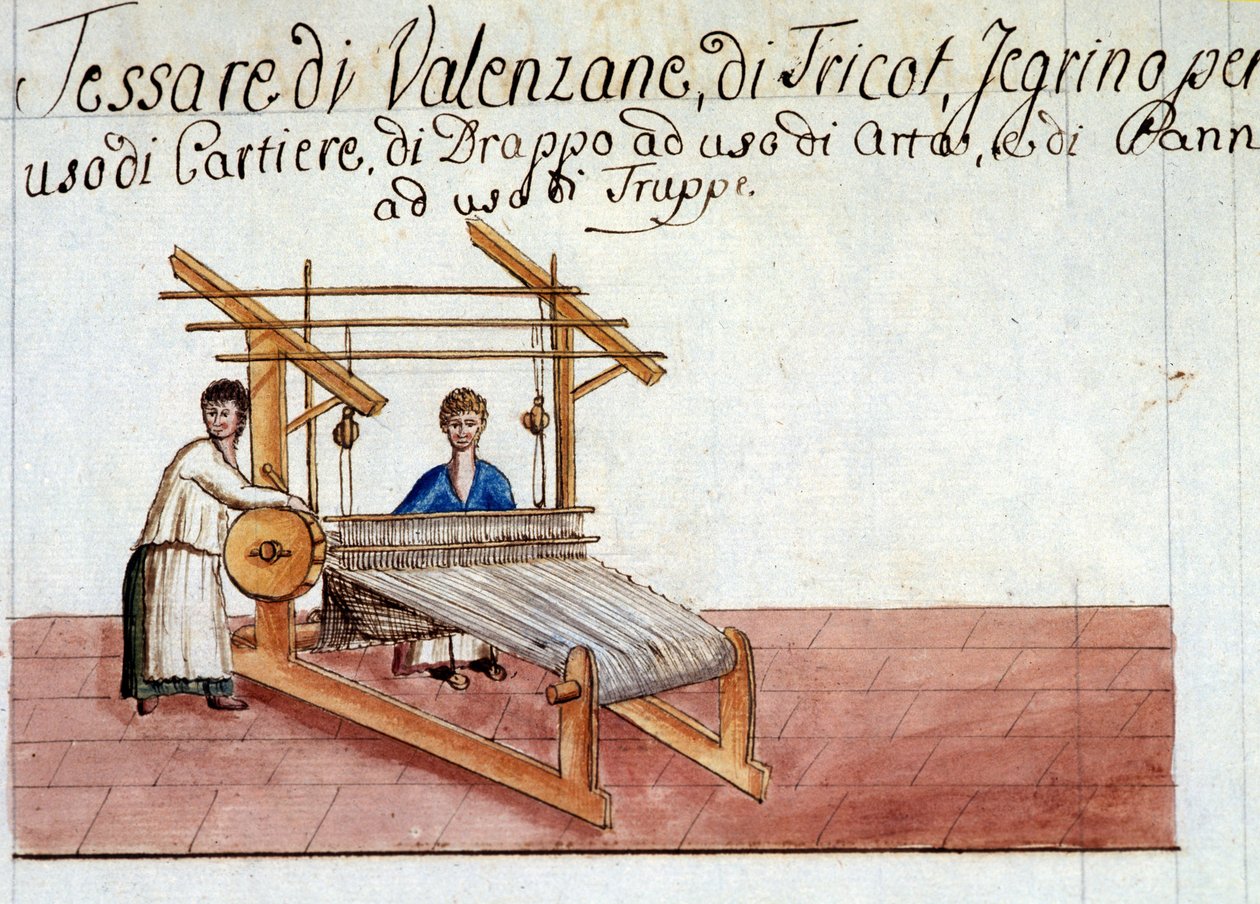 Tessare di Valenzane, di Tricot, Jegrino per
uso di Cartiere, di Drappo ad uso di Arta, e di Pann
ad uso di Truppe.